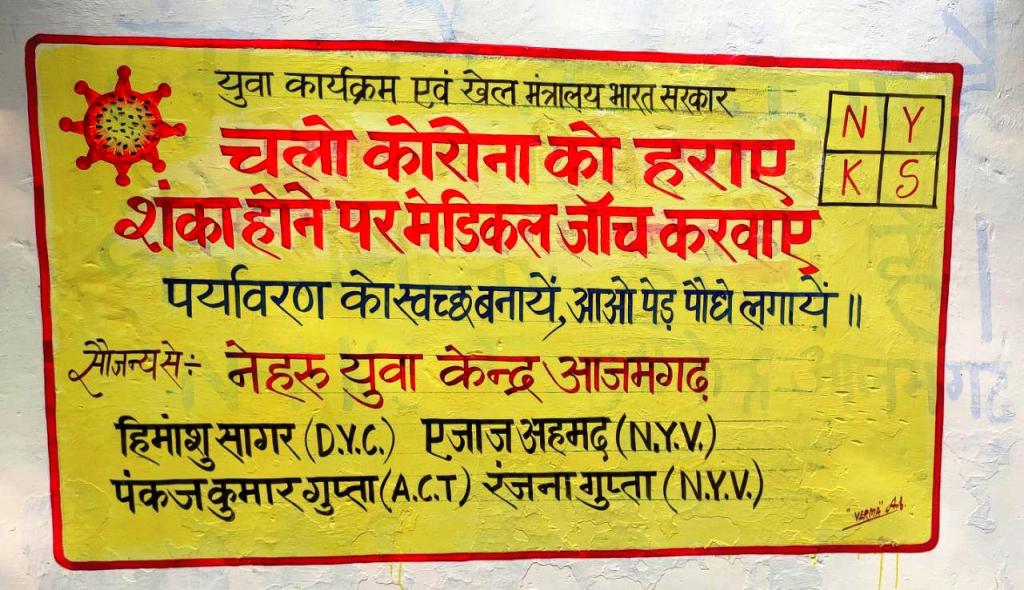 युवा कार्यक्रम एवं खेल मंत्रालय भारत सरकार
N Y
K S
चलो कोरोना को हराए
शंका होने पर मेडिकल जॉच करवाएं
पर्यावरण को स्वच्छ बनायें, आओ पेड़ पौधे लगायें ॥
सौजन्य से :- नेहरू युवा केन्द्र आजमगढ़
हिमांशु सागर (D.Y.C.) एजाज अहमद (N.Y.V.)
पंकज कुमार गुप्ता (A.C.T) रंजना गुप्ता (N.Y.V.)
"VERMA"